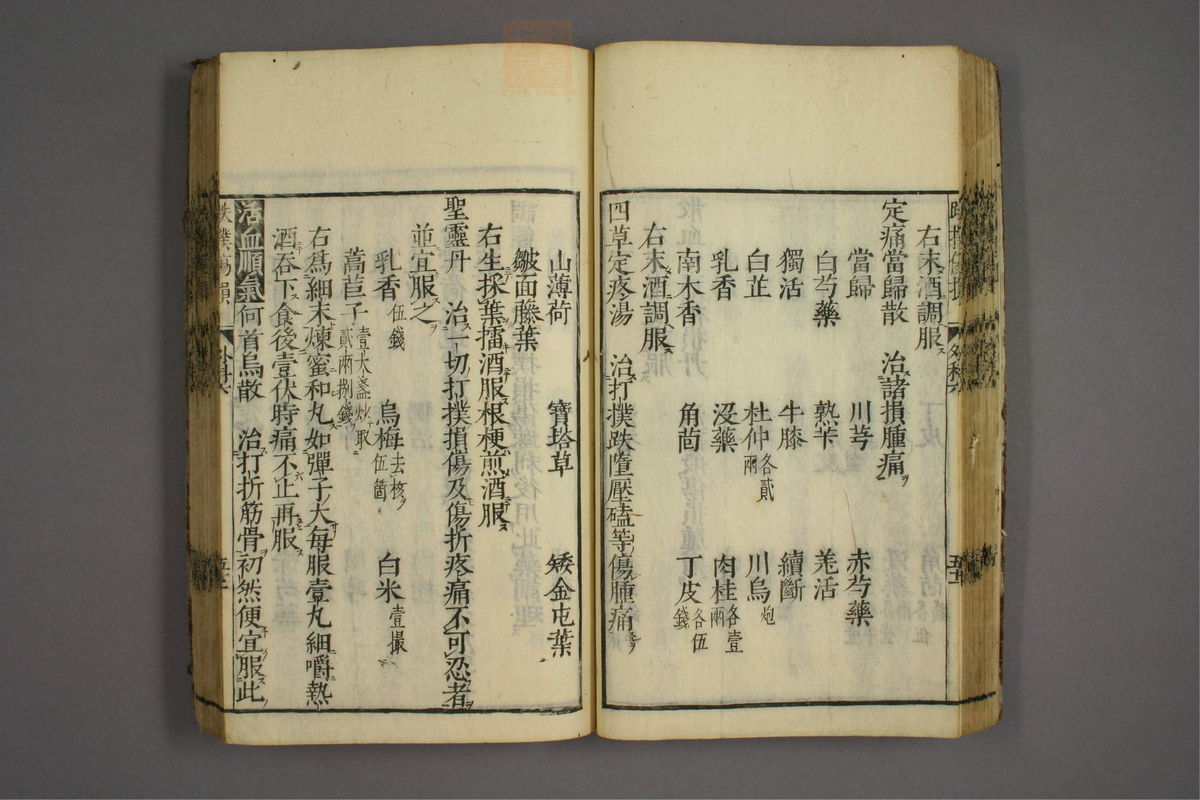 右末酒調服
定痛當歸散　治諸損腫痛
當歸　川芎　赤芍藥
白芍藥　熟芐　羌活
獨活　牛膝　續斷
白芷　杜仲各貳兩　川烏炮
乳香　沒藥　肉桂各壹兩
南木香　角茴　丁皮各伍錢
右末酒調服
四草定疼湯　治打撲跌墮壓磕等傷腫痛
山薄荷　寶塔草　矮金屯葉
皺面藤葉
右生採葉擂酒服根梗煎酒服
聖靈丹　治一切打撲損傷及傷折疼痛不可忍者
並宜服之
乳香伍錢　烏梅去核伍箇　白米壹撮
萵苣子壹大盞炒取貳兩捌錢
右爲細末煉蜜和丸如彈子大每服壹丸細嚼熱
酒吞下食後壹伏時痛不止再服
活血順氣何首烏散　治打折筋骨初然便宜服此